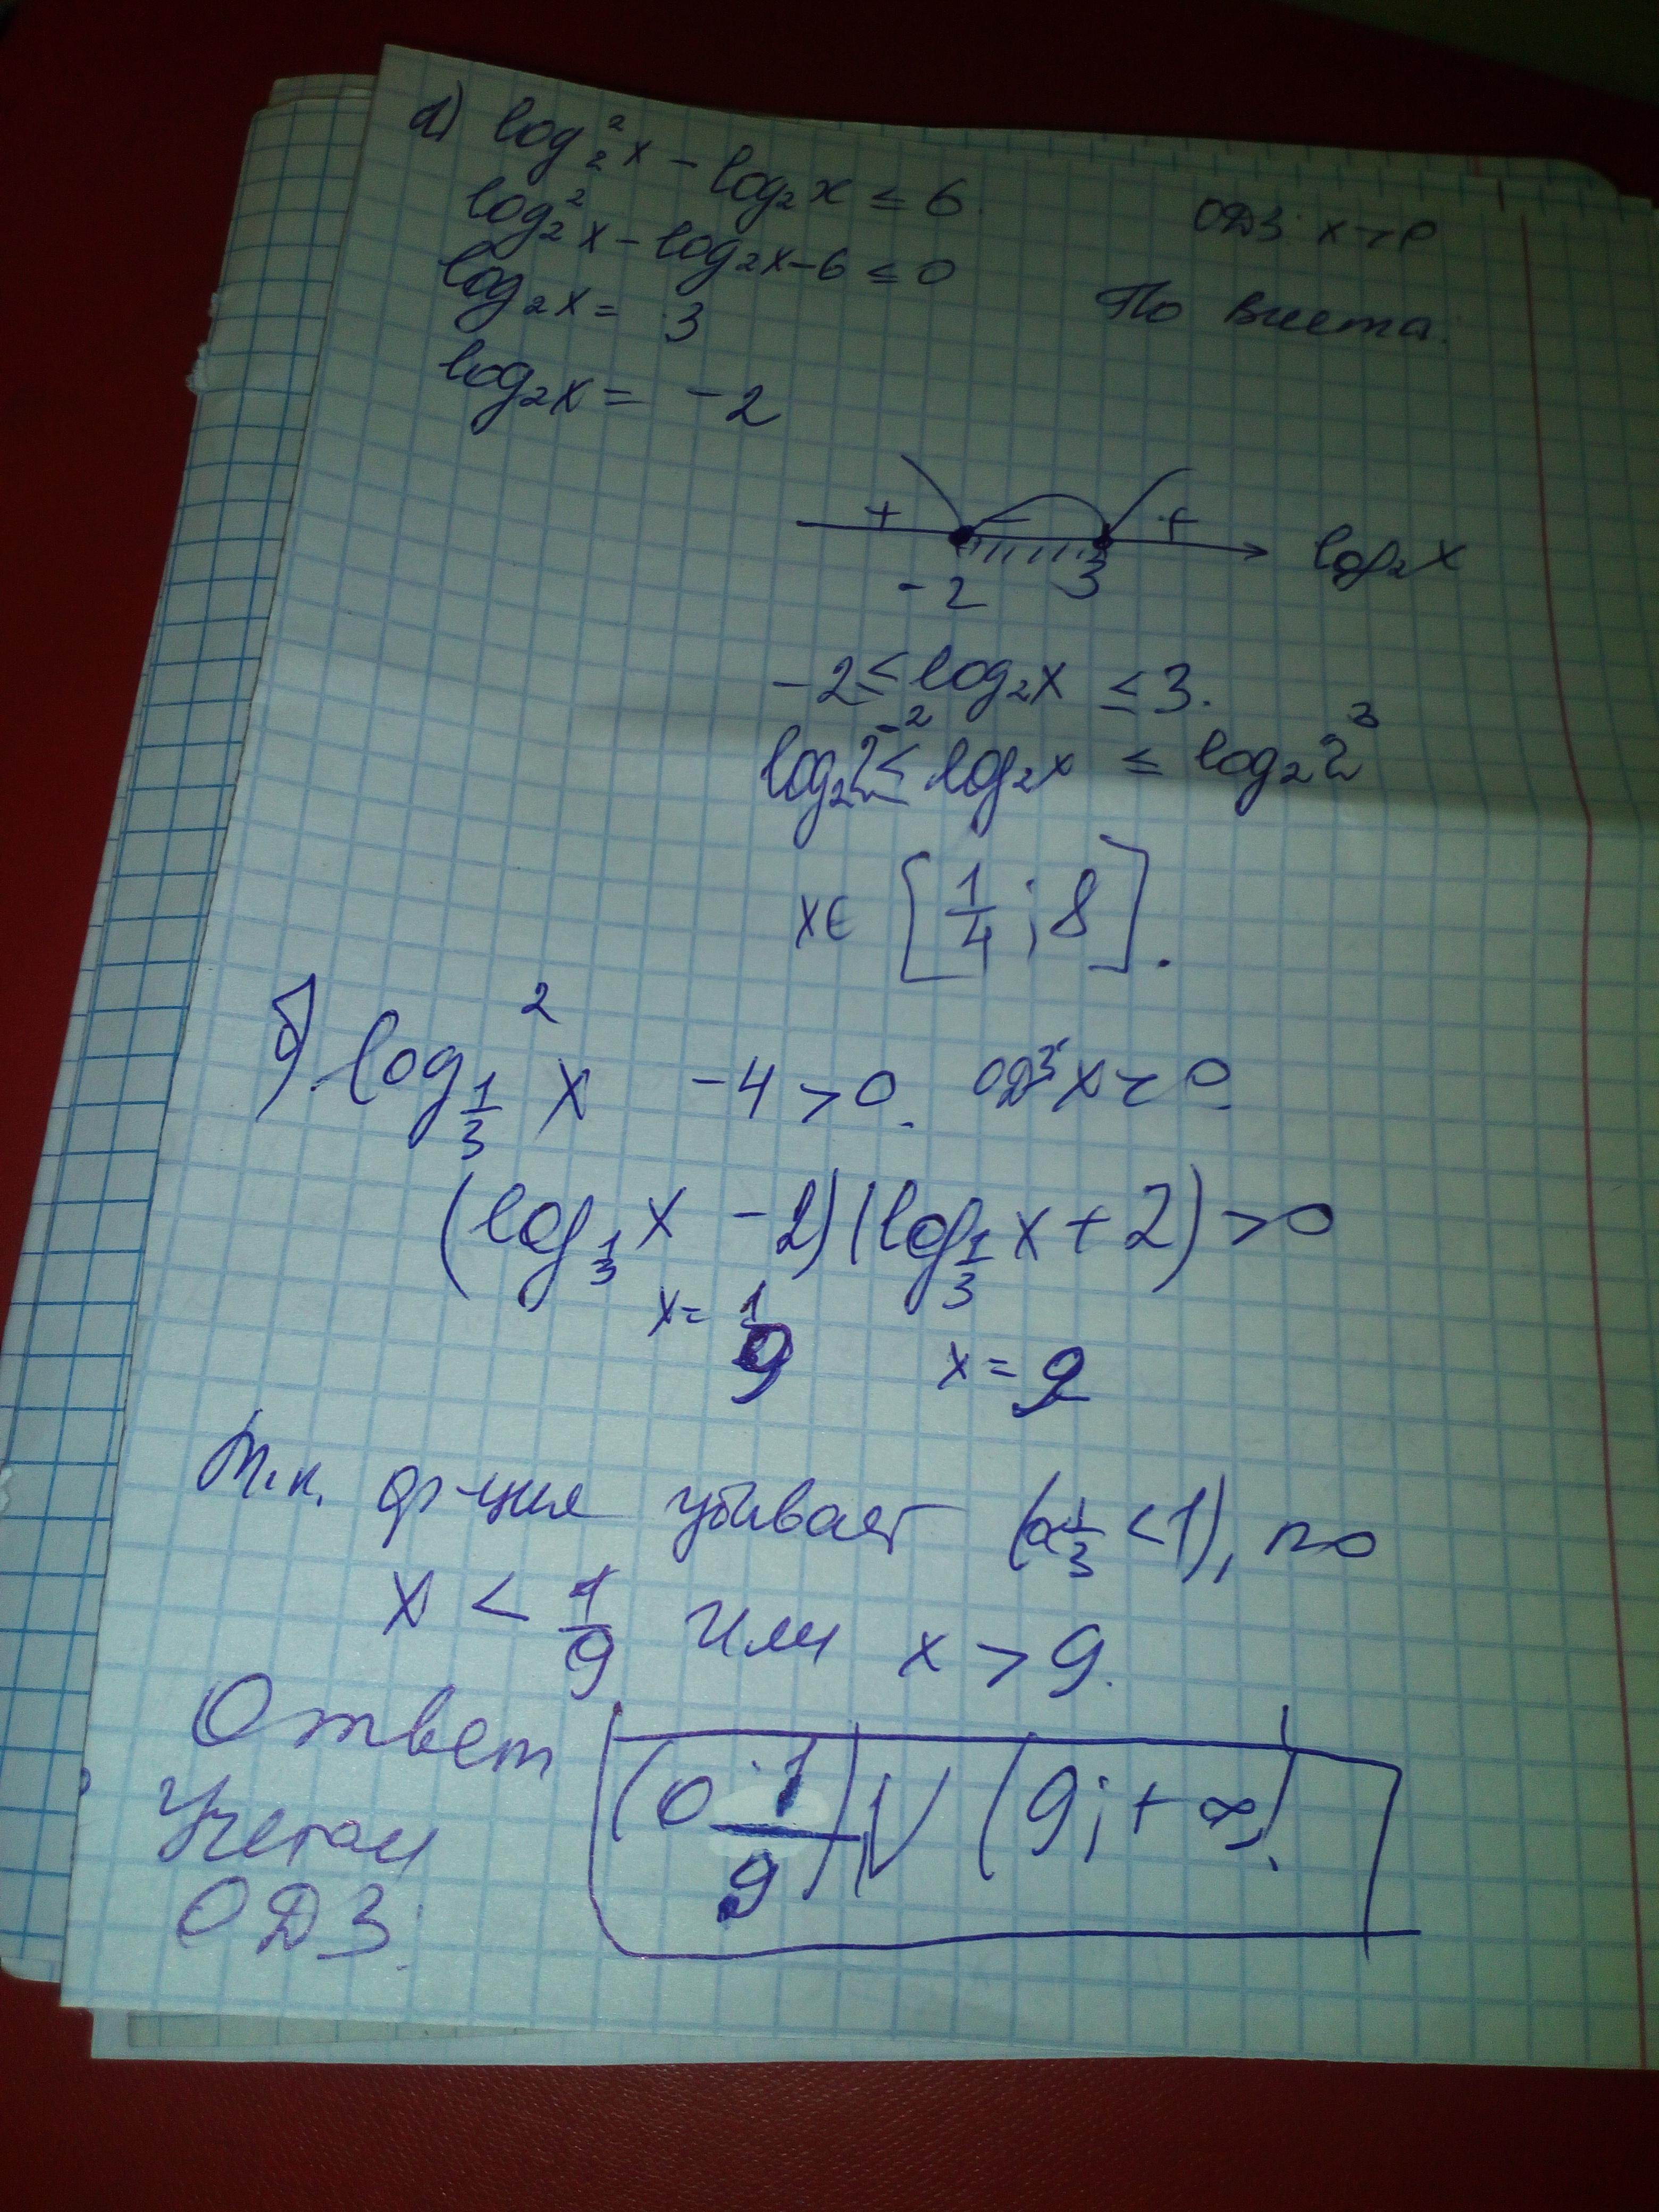 а) log₂²x - log₂x ≤ 6. ОДЗ: x > 0
log₂²x - log₂x - 6 ≤ 0
log₂x = 3 По Виета:
log₂x = -2
+ - +
-2 3 log₂x
-2 ≤ log₂x ≤ 3.
log₂2⁻² ≤ log₂x ≤ log₂2³
x ∈ [1/4; 8].
б) log²_{1/3} x - 4 > 0. ОДЗ x > 0.
(log_{1/3} x - 2)(log_{1/3} x + 2) > 0
x = 1/9 x = 9
т.к. ф-ция убывает (a 1/3 < 1), то
x < 1/9 или x > 9.
Ответ (0 1/9) U (9; +∞).
Учетом
ОДЗ.